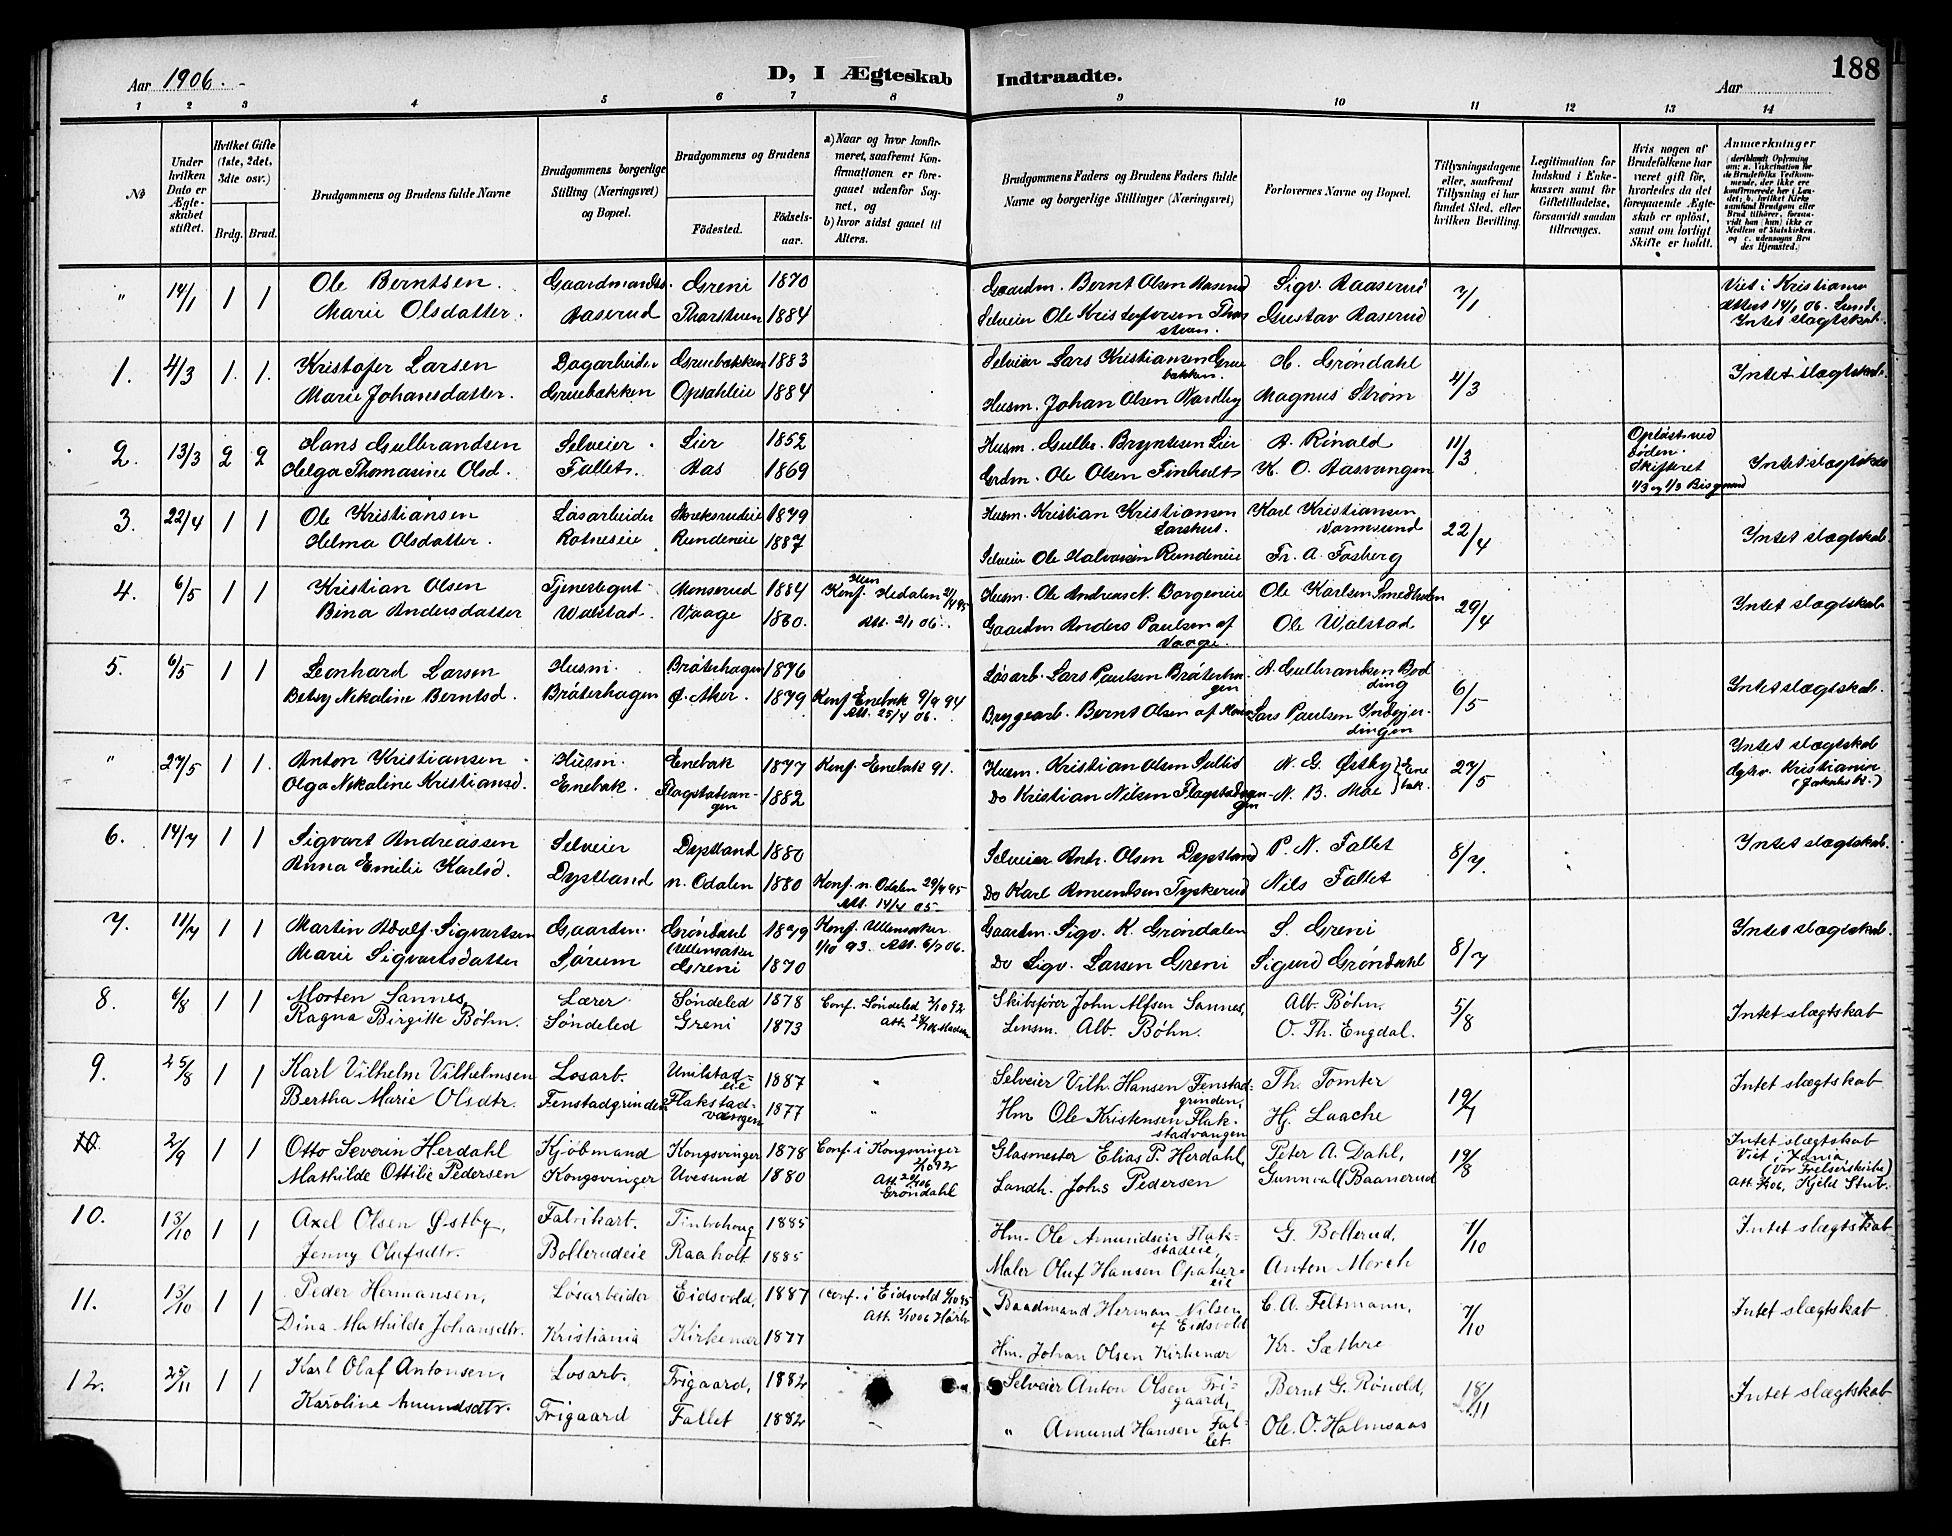 Aar 1906. D, I Ægteskab Indtraadte. Aar 188
1 2 3 4 5 6 7 8 9 10 11 12 13 14
№
Under hvilken Dato er Ægteskabet stiftet.
Hvilket Gifte (1ste, 2det, 3die osv.)
Brdg. Brud.
Brudgommens og Brudens fulde Navne
Brudgommens borgerlige Stilling (Næringsvei) og Bopæl.
Brudgommens og Brudens
Födested. Födsels-aar.
a) Naar og hvor konfirmeret, saafremt Konfirmationen er foregaaet udenfor Sognet, og
b) hvor sidst gaaet til Alters.
Brudgommens Faders og Brudens Faders fulde Navne og borgerlige Stillinger (Næringsvei)
Forlovernes Navne og Bopæl.
Tillysningsdagene eller, saafremt Tillysning ei har fundet Sted, efter hvilken Bevilling.
Legitimation for Indskud i Enkekassen samt for Giftetilladelse, forsaavidt saadan tiltrænges.
Hvis nogen af Brudefolkene har været gift för, hvorledes da det foregaaende Ægteskab er oplöst, samt om lovligt Skifte er holdt.
Anmærkninger
" 14/1 1 1 Ole Berntsen. Gaardmandss. Greni 1870 Gaardm. Bernt Olsen Raserud Sigv. Raaserud 7/1 Viet i Kristiania
Marie Olsdatter. Raserud Tharstuen 1884 Selveier Ole Kristofersen Thorstuen. Gustav Raserud Attest 14/1 06. Lund. Intet slægtskab.
1. 4/3 1. 1. Kristofer Larsen Dagarbeider Gruebakken 1883 Selveier Lars Kristiansen Gruebakken. C. Grøndahl 4/3 Intet slægtskab.
Marie Johansdatter. Gruebakken Opsahleie 1884 Husm. Johan Olsen Nordby Magnus Strøm
2. 13/3 2 2 Hans Gulbrandsen Selveier Lier 1852 Husm. Gulbr. Bryntsen Lier A. Rinald 11/3 Opløst ved Døden. Skifteret Intet slægtskab
Helga Thomasine Olsd. Fallet. Aas 1869 Grdm. Ole Olsen Finholt K. O. Aasvangen
3. 22/4 1 1 Ole Kristiansen Løsarbeider 1879 Husm. Kristian Kristiansen Larshus. Karl Kristiansen Vormsund 22/4 Intet slægtskab
Helma Olsdatter. Rotneseie Rundeneie 1887 Selveier Ole Halvorsen Rundeneie Fr. A. Fosberg
4. 6/5 1 1 Kristian Olsen Tjenestegut Monserud 1884 Konf. Hedalen Husm. Ole Andreas N. Borgeneie Ole Karlsen Smedholen 29/4 Intet slægtskab
Bina Andersdatter Walstad Vaage 1880. Att. 2/1 06. Gaardm Anders Paulsen af Vaage. Ole Walstad
5. 6/5 1 1 Leonhard Larsen Husm. Bråterhagen 1876 Løsarb. Lars Paulsen Bråterhagen A. Gulbrandsen Bodding 6/5 Intet slægtskab.
Betsy Nikoline Berntsd. Bråterhagen Ø. Aker. 1879 Konf Enebak 9/9 94 Att. 25/4 06. Bryggearb. Bernt Olsen af Lars Paulsen
" 27/5 1 1. Anton Kristiansen Husm. Enebak 1877 Konf. Enebak 91. Husm. Kristian Olsen N. G. Østby } Enebak. 27/5 Intet slægtskab
Olga Nikoline Kristiansd. Enebak. Flagstadvangen 1882 Do Kristian Nilsen Flagstadvangen N. B. Moe Kristiania
6. 14/7 1 1 Sigvart Andreassen Selveier Dystland 1880 Selveier Andr. Olsen Dystland P. N. Fallet 8/7 Intet slægtskab.
Anna Emilie Karlsd. Dystland n. Odalen 1880 Konf. n. Odalen 29/9 95 Do Karl Amundsen Tyskerud Nils Fallet
7. 11/7 1 1 Martin Adolf Sigvartsen Gaardm. Grøndahl (Ullensaker 1879 Konf. Ullensaker 1/10 93. Att. 6/7 06. Gaardm. Sigv. K. Grøndalen S. Greni 8/7 Intet slægtskab.
Marie Sigvartsdatter Sørum Greni 1870 Do Sigv. Larsen Greni Sigurd Grøndahl
8. 6/8 1 1 Morten Sannes, Lærer Søndeled 1878 Conf. Søndeled 2/10 92 Skibsfører John Alfsen Sannes, Alb. Bøhn. 5/8 Intet slægtskab
Ragna Birgitte Bøhn. Søndeled Greni 1873 Lensm. Alb. Bøhn. O. Th. Engdal.
9. 25/8 1 1 Karl Vilhelm Vilhelmsen Losarb. Unilstadeie 1887 " Selveier Vilh. Hansen Fenstadgrinden, Th. Tomter 19/7 Intet slægtskab
Bertha Marie Olsdtr. Fenstadgrinden Flakstadvangen 1877 " Hm Ole Kristensen Flakstadvangen Hj. Laache
10. 2/9 1 1 Otto Severin Herdahl Kjøbmand Kongsvinger 1878 Conf. i Kongsvinger 2/10 92 Glasmester Elias P. Herdahl, Peter A. Dahl, 19/8 Intet slægtskab Viet i Xania, (Vor Frelserskirke)
Mathilde Ottilie Pedersen Kongsvinger Uvesund 1880 Grøndahl Landh. Johs Pedersen Gunnvald Baanerud Kjeld Stub.
10. 13/10 1 1 Axel Olsen Østby, Fabrikarb. Tinbehoug 1885 Hm. Ole Amundsen Flakstadeie, G. Bollerud, 7/10 Intet slægtskab
Jenny Olufsdtr. Bollerudeie Raaholt 1885 Maler Oluf Hansen Opakereie Anton Moreh
11. 13/10 1 1 Peder Hermansen, Løsarbeider Eidsvold, 1887 Conf. i Eidsvold Baadmand Herman Nilsen af Eidsvold C. A. Feltmann, 7/10 Intet slægtskab
Dina Mathilde Johansdtr. Kristiania Kirkenær 1877 Hm. Johan Olsen Kirkenær Kr. Sæthre
12. 25/11 1 1 Karl Olaf Antonsen, Losarb. Frigaard, 1882 Selveier Anton Olsen Frigaard, Bernt G. Rønold, 18/11 Intet slægtskab
Karoline Amundsdtr. Frigaard Fallet 1882 " Amund Hansen Fallet. Ole. O. Halmsaas